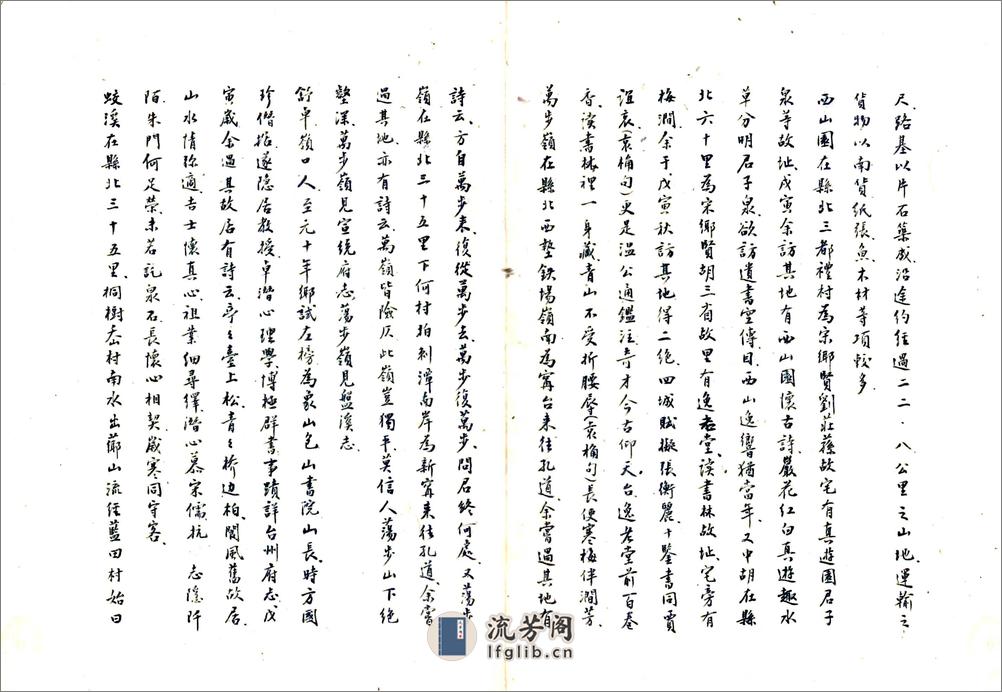 尺路基以片石築成沿途約經過二二·八公里之山地運輸之
貨物以南貨紙張魚木材等項較多
西山園在縣北三都禮村為宋鄉賢劉莊蓀故宅有真遊園君子
泉等故址戊寅余訪其地有西山園懷古詩巖花紅白真遊趣水
草分明君子泉欲訪遺書空傳目西山逸響猶當年又中胡在縣
北六十里為宋鄉賢胡三省故里有逸老堂讀書林故址宅旁有
梅澗余于戊寅秋訪其地得二絕四城賦擬張衡麗十鑒書同賈
誼哀(袁桷句)更是溫公通鑑注奇才今古仰天台逸老堂前百卷
香讀書林裡一身藏青山不受折腰辱(袁桷句)長使寒梅伴澗芳
萬步嶺在縣北西墊鉄場嶺南為寗台來往孔道余嘗過其地有
詩云方自萬步來復從萬步去萬步復萬步問君終何處又蕩步
嶺在縣北三十五里下何村柏剌潭南岸為新寗來往孔道余嘗
過其地亦有詩云萬嶺皆險仄此嶺豈獨平莫信人蕩步山下絕
壑深萬步嶺見宣統府志蕩步嶺見盤溪志
舒卓嶺口人至元十年鄉試左榜為象山包山書院山長時方國
珍僭据遂隱居教授卓潛心理學博極群書事蹟詳台州府志戊
寅歲余過其故居有詩云亭々臺上松青々橋边柏閬風舊故居
山水情弥適吉士懷真心祖業細尋繹潛心慕宋儒抗 志隱阡
陌朱門何足榮未若託泉石長懷心相契歲寒同守客
蛟溪在縣北三十五里桐樹岙村南水出鄮山流徑藍田村始曰
流芳阁
lfglib.cn